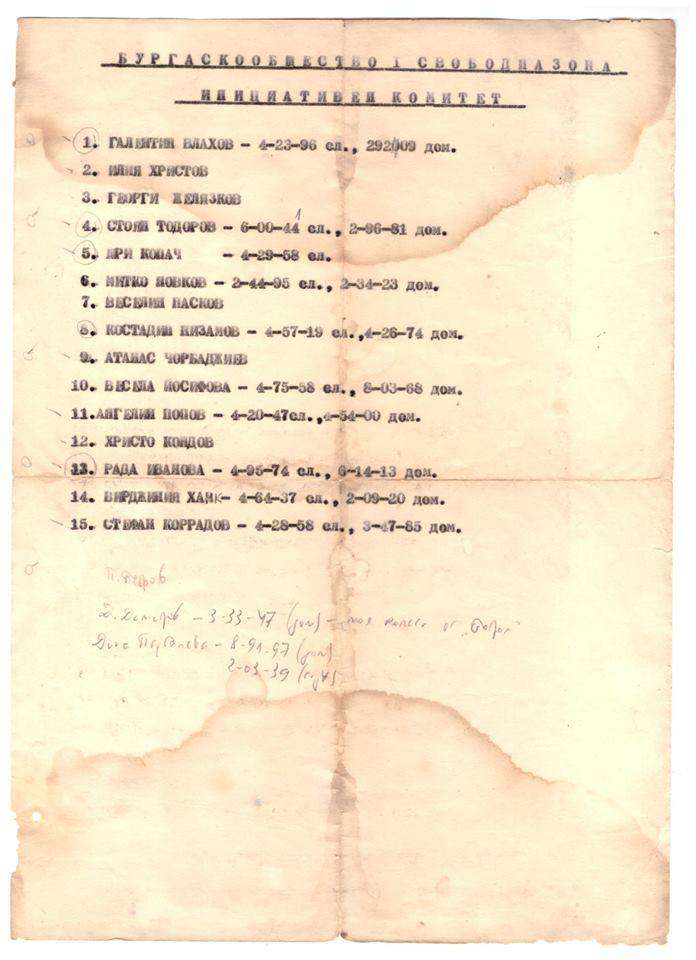 БУРГАСКО ОБЩЕСТВО И СВОБОДНА ЗОНА
ИНИЦИАТИВЕН КОМИТЕТ
1. ВАЛЕНТИН ВЛАХОВ - 4-23-96 сл., 292009 дом.
2. ИЛИЯ ХРИСТОВ
3. ГЕОРГИ ЖЕЛЯЗКОВ
4. СТОЯН ТОДОРОВ - 6-00-41 сл., 2-96-81 дом.
5. ЯРИ КОВАЧ - 4-29-58 сл.
6. МИТКО ЙОВКОВ - 2-44-95 сл., 2-34-23 дом.
7. ВЕСЕЛИН ВАСКОВ
8. КОСТАДИН НИЗАМОВ - 4-57-19 сл.,4-26-74 дом.
9. АТАНАС ЧОРБАДЖИЕВ
10. ВЕСЕЛА ЙОСИФОВА - 4-75-58 сл., 8-03-68 дом.
11.АНГЕЛИН ПОПОВ - 4-20-47сл.,4-54-00 дом.
12. ХРИСТО КОНДОВ
13. РАДА ИВАНОВА - 4-95-74 сл., 6-14-13 дом.
14. ВИРДЖИНИЯ ХАЯК- 4-64-37 сл., 2-09-20 дом.
15. СТЕФАН КОРРАДОВ - 4-28-58 сл., 3-47-85 дом.
П.
Д. - 3-33-47 (дом) -
- 8-91-97 (дом)
2-03-39